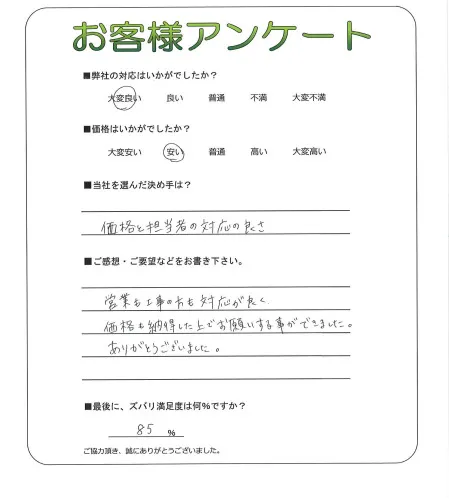 お客様アンケート
■弊社の対応はいかがでしたか？
大変良い 良い 普通 不満 大変不満
■価格はいかがでしたか？
大変安い 安い 普通 高い 大変高い
■当社を選んだ決め手は？
価格と担当者の対応の良さ
■ご感想・ご要望などをお書き下さい。
営業も工事の方も対応が良く、
価格も納得した上でお願いする事ができました。
ありがとうございました。
■最後に、ズバリ満足度は何％ですか？
85 %
ご協力頂き、誠にありがとうございました。